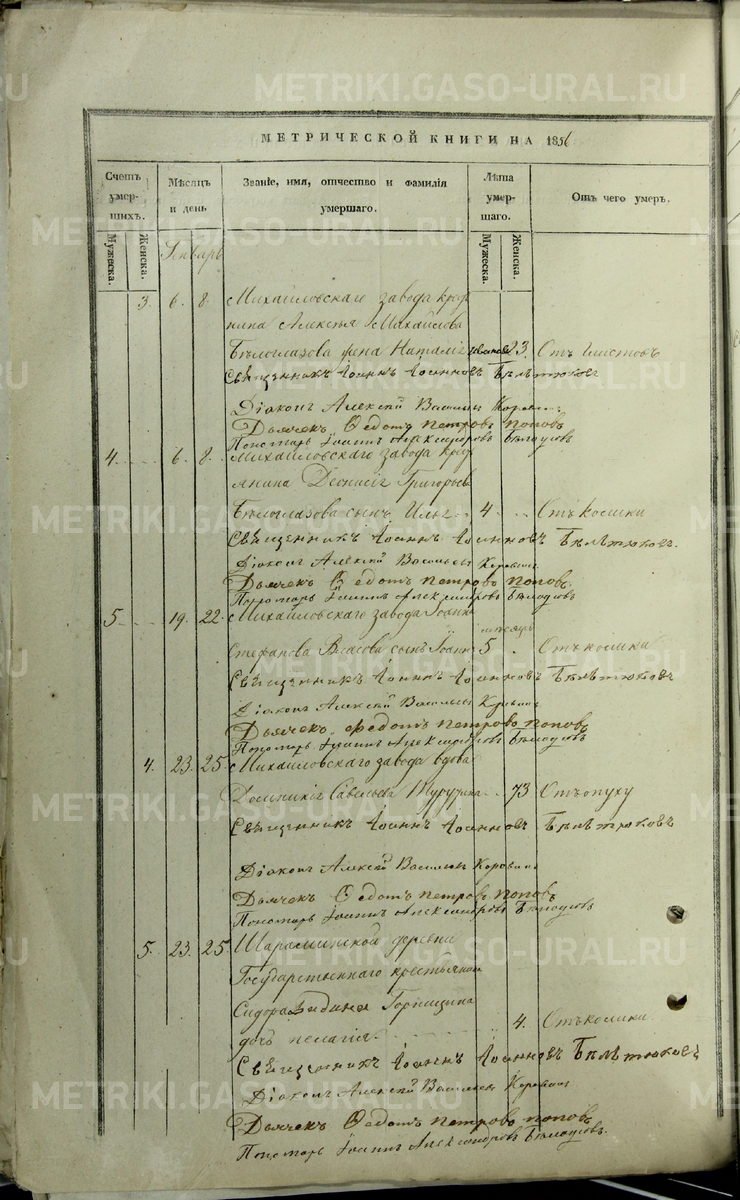 МЕТРИЧЕСКОЙ КНИГИ НА 1856
Счетъ умер-шихъ.
Мужеска.
Женска.
Мѣсяцъ и день
Званіе, имя, отчество и фамилія умершаго.
Лѣта умер-шаго.
Мужеска.
Женска.
Отъ чего умеръ.
Январь
3. 6. 8. Михайловскаго завода крес
нина Алексѣя Михайлова
Бѣлоглазова жена Наталія Иванова 23. Отъ глистовъ
Священникъ Іоаннъ Іоанновъ
Діаконъ Алексѣй Васильевъ Коровинъ
Дьячекъ Ѳедотъ Петровъ Поповъ
Пономарь Іоаннъ Александровъ
4. 6. 8. Михайловскаго завода крес
янина Деонисія Григорьева
Бѣлоглазова сынъ Илья 4 Отъ колики
Священникъ Іоаннъ Іоанновъ
Діаконъ Алексѣй Васильевъ Коровинъ
Дьячекъ Ѳедотъ Петровъ Поповъ
Пономарь Іоаннъ Александровъ
5. 19. 22. Михайловскаго завода Іоанна
Стефанова Власова сынъ Іоаннъ месяцъ 5 Отъ колики
Священникъ Іоаннъ Іоанновъ
Діаконъ Алексѣй Васильевъ Коровинъ
Дьячекъ Ѳедотъ Петровъ Поповъ
Пономарь Іоаннъ Александровъ
4. 23. 25. Михайловскаго завода вдова
Домникія Савельева 73 Отъ опуху
Священникъ Іоаннъ Іоанновъ
Діаконъ Алексѣй Васильевъ Коровинъ
Дьячекъ Ѳедотъ Петровъ Поповъ
Пономарь Іоаннъ Александровъ
5. 23. 25. Шараминской деревни
Государственнаго крестьянина
Сидора
дочь Пелагія. 4. Отъ колики
Священникъ Іоаннъ Іоанновъ
Діаконъ Алексѣй Васильевъ Коровинъ
Дьячекъ Ѳедотъ Петровъ Поповъ
Пономарь Іоаннъ Александровъ
METRIKI.GASO-URAL.RU